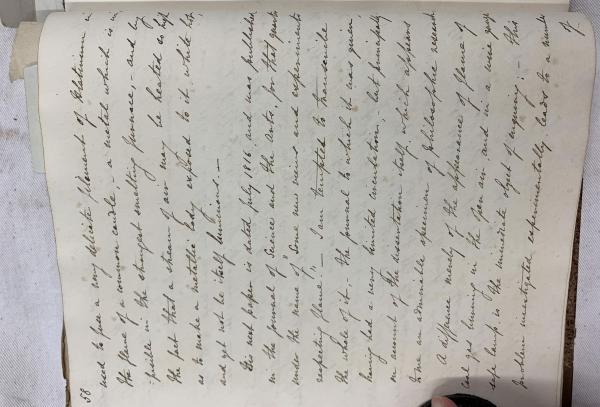 58
used to fuse a very delicate filament of Platinum in
the flame of a common candle, - a metal which is in
-fusible in the strongest smelting furnace, - and by
the fact that a stream of air may be heated so high
as to make a metallic body exposed to it white hot,
and yet not be itself luminous. -
His next paper is dated July 1816 and was published
in the Journal of Science and the Arts, for that quarter
under the name of "Some new views and experiments
respecting Flame". - I am tempted to transcribe
the whole of it, the journal to which it was given
having had a very limited circulation, but principally
on account of the dissertation itself, which appears
to me an admirable specimen of philosophic research
A difference merely of the appearance of flame of
coal gas burning in the open air and in a wire gauze
safe lamp is the immediate object of enquiry; - This
problem investigated experimentally leads to a number
of